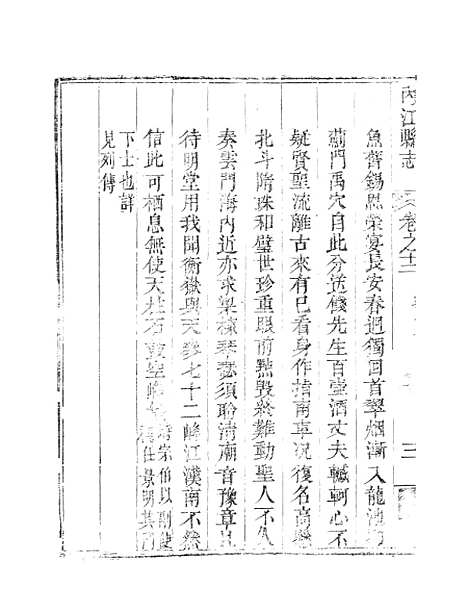 內江縣志 卷之十二 三
魚齊錫恩榮宴長安春過獨回首翠烟漸入龍池
薊門禹穴自此分送餞先生百壺酒丈夫轗軻心不
疑賢聖流離古來有已看身作指南車況復名高懸
北斗隋珠和璧世珍重眼前點毀終難動聖人不久
奏雲門海內近亦求梁棟琴瑟須聆清廟音豫章且
待明堂用我聞衡嶽與天參七十二峰江漢南不然
信此可栖息無使天柱石 空 宗伯以副使 仕景明其門
下士也詳
見列傳